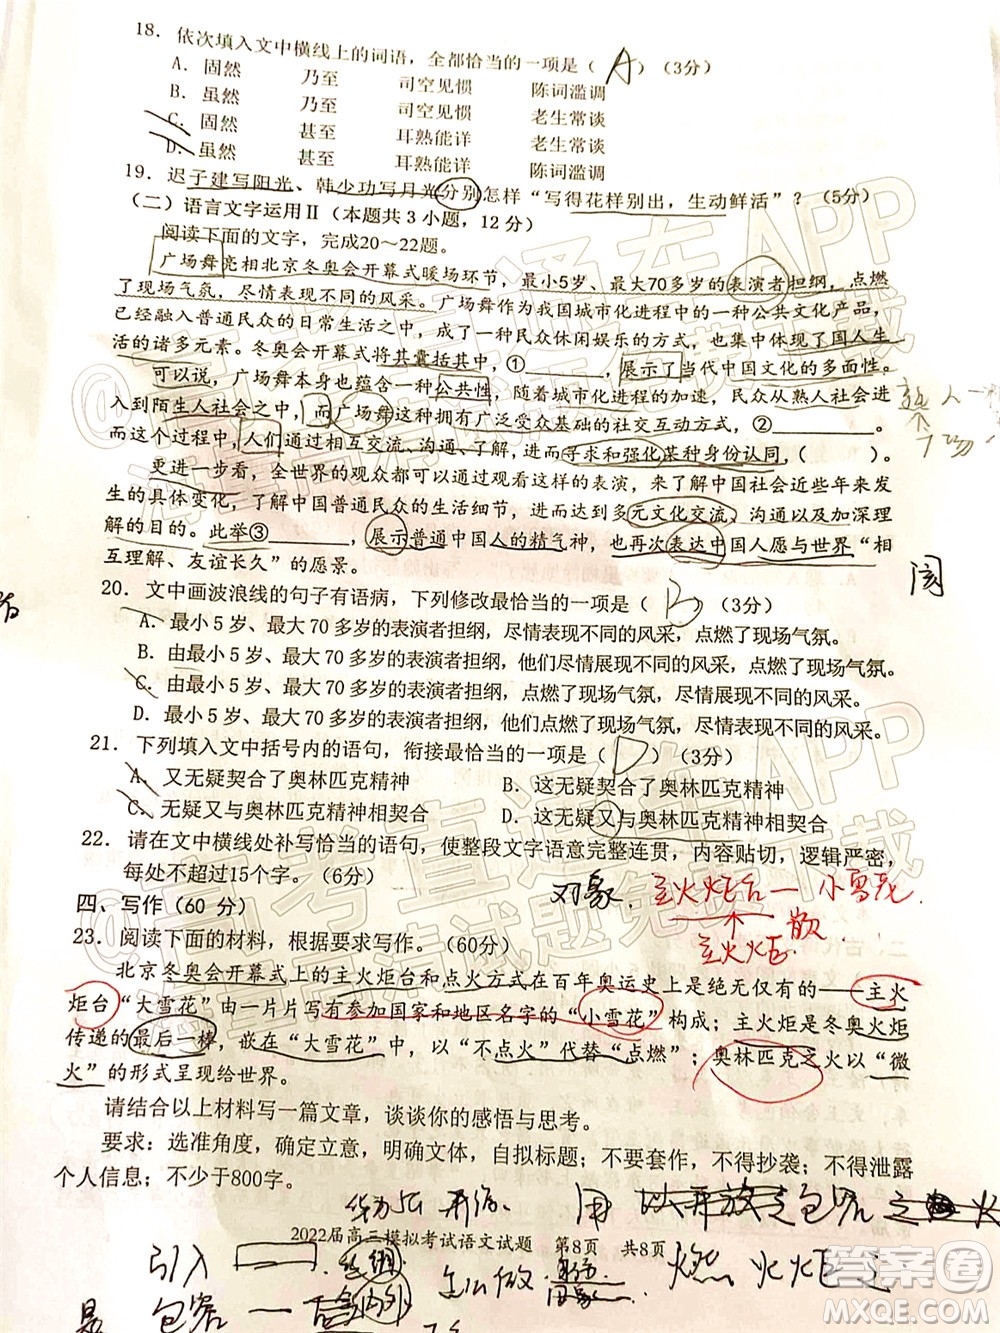 18．依次填入文中横线上的词语，全都恰当的一项是（ A ）（3分）
A．固然 乃至 司空见惯 陈词滥调
B．虽然 乃至 司空见惯 老生常谈
C．固然 甚至 耳熟能详 老生常谈
D．虽然 甚至 耳熟能详 陈词滥调
19．迟子建写阳光、韩少功写月光分别怎样“写得花样别出，生动鲜活”？（5分）
（二）语言文字运用Ⅱ（本题共3小题，12分）
阅读下面的文字，完成20～22题。
广场舞亮相北京冬奥会开幕式暖场环节，最小5岁、最大70多岁的表演者担纲，点燃
了现场气氛，尽情表现不同的风采。广场舞作为我国城市化进程中的一种公共文化产品，
已经融入普通民众的日常生活，成了一种民众休闲娱乐的方式，也集中体现了国人生
活的诸多元素。冬奥会开幕式将其囊括其中，①________，展示了当代中国文化的多面性。
可以说，广场舞本身也蕴含一种公共性，随着城市化进程的加速，民众从熟人社会进
入到陌生人社会之中，而广场舞这种拥有广泛受众基础的社交互动方式，②________。
而这个过程中，人们通过相互交流、沟通、了解，进而寻求和强化某种身份认同，（ ）。
更进一步看，全世界的观众都可以通过观看开幕式，来了解中国社会近些年来发
生的具体变化，了解中国普通民众的生活细节，进而达到多元文化交流、沟通以及加深理
解的目的。此举③________，展示普通中国人的精气神，也再次表达中国人愿与世界“相
互理解、友谊长久”的愿景。
阂
20．文中画波浪线的句子有语病，下列修改最恰当的一项是（ B ）（3分）
A．最小5岁、最大70多岁的表演者担纲，尽情表现不同的风采，点燃了现场气氛。
B．由最小5岁、最大70多岁的表演者担纲，他们尽情表现不同的风采，点燃了现场气氛。
C．由最小5岁、最大70多岁的表演者担纲，点燃了现场气氛，尽情表现不同的风采。
D．最小5岁、最大70多岁的表演者担纲，他们点燃了现场气氛，尽情表现不同的风采。
21．下列填入文中括号内的语句，衔接最恰当的一项是（ D ）（3分）
A．又无疑契合了奥林匹克精神 B．这无疑契合了奥林匹克精神
C．无疑又与奥林匹克精神相契合 D．这无疑又与奥林匹克精神相契合
22．请在文中横线处补写恰当的语句，使整段文字语意完整连贯，内容贴切，逻辑严密，
每处不超过15个字。（6分）
对象． 主火炬台—小雪花
个 散
主火炬
四、写作（60 分）
23．阅读下面的材料，根据要求写作。（60分）
北京冬奥会开幕式上的主火炬台和点火方式在百年奥运史上是绝无仅有的——主火
炬台“大雪花”由一片片写有参加国家和地区名字的“小雪花”构成；主火炬是冬奥火炬
传递的最后一棒，嵌在“大雪花”中，以“不点火”代替“点燃”；奥林匹克之火以“微
火”的形式呈现给世界。
请结合以上材料写一篇文章，谈谈你的感悟与思考。
要求：选准角度，确定立意，明确文体，自拟标题；不要套作，不得抄袭；不得泄露
个人信息；不少于800字。
2022届高三模拟考试语文试题 第8页 共8页
引入
怎么做
燃 火炬
是 包容 一
答案圈
MXQE.COM